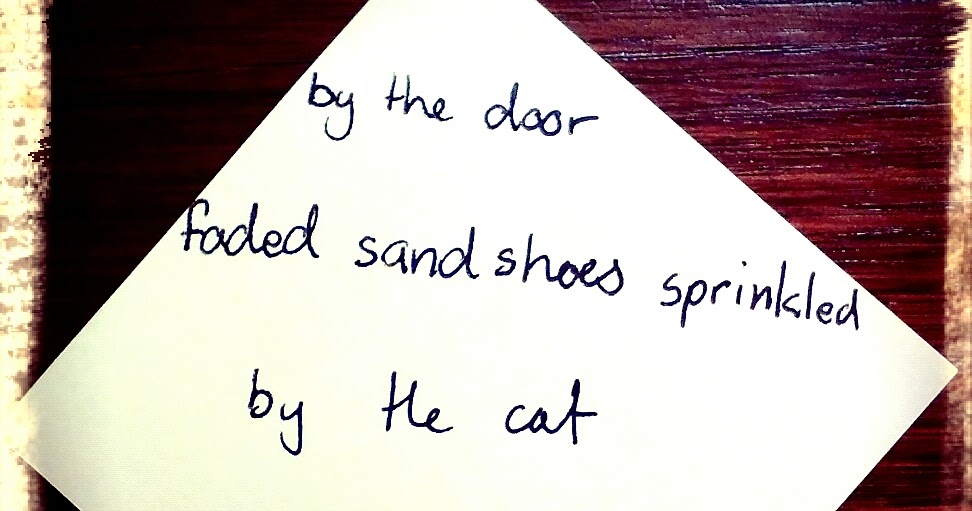 by the door
faded sandshoes sprinkled
by the cat